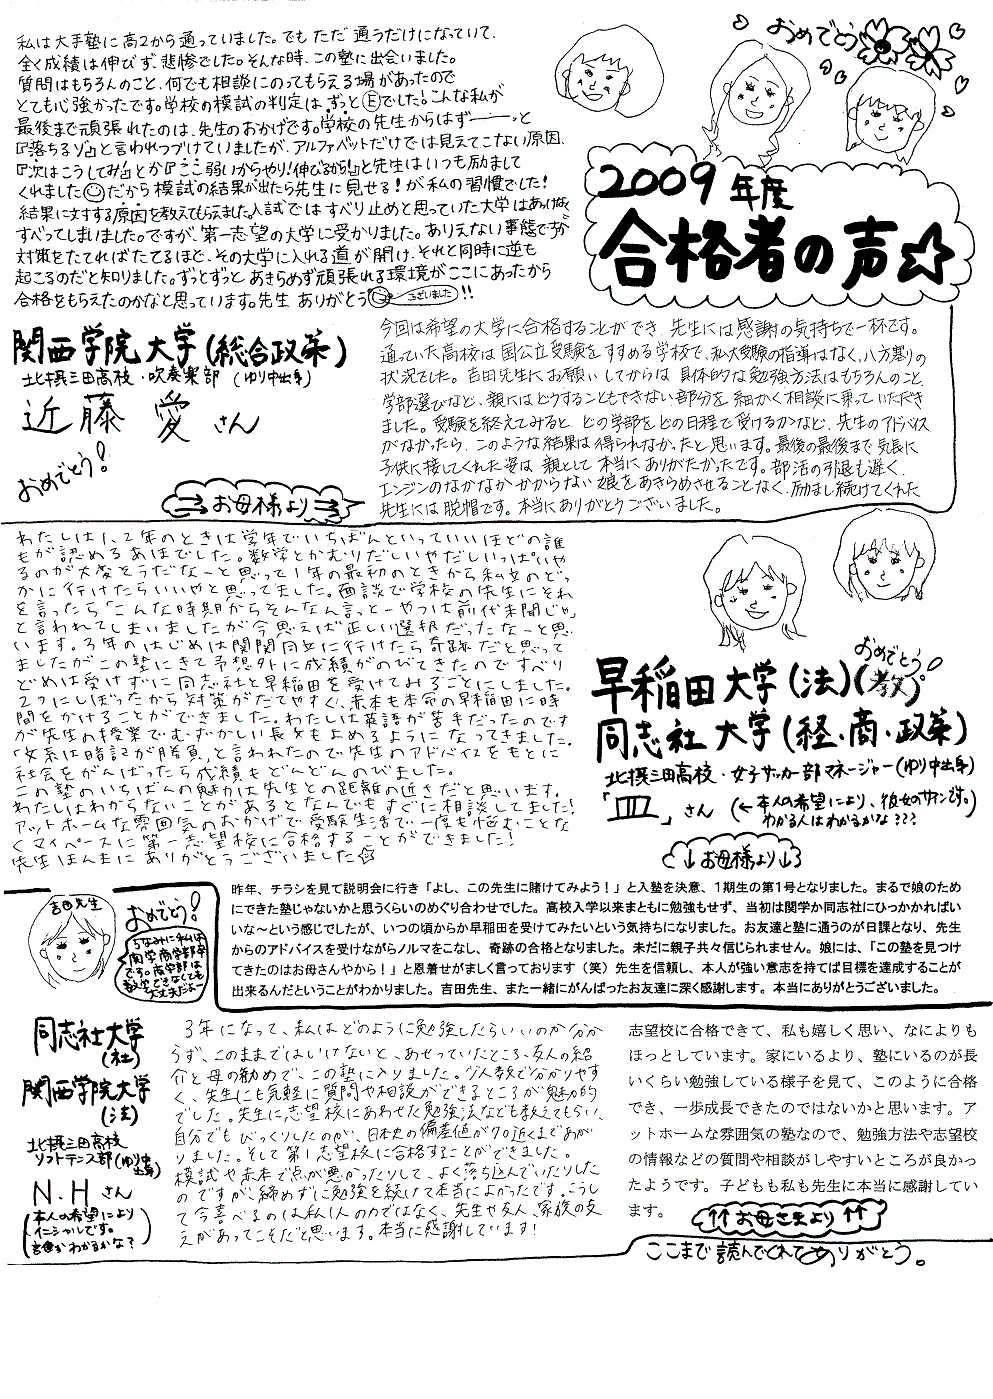 私は大手塾に高2から通っていました。でもただ通うだけになっていて、
全く成績は伸びず、悲惨でした。そんな時、この塾に出会いました。
質問はもちろんのこと、何でも相談にのってもらえる場があったので
とても心強かったです。学校の模試の判定は、ずっとⒺでした!こんな私が
最後まで頑張れたのは、先生のおかげです。学校の先生からはず――っと
『落ちるゾ』と言われつづけていましたが、アルファベットだけでは見えてこない原因、
『次はこうしてみ』とか『ここ弱いからやり!伸びるから!』と先生はいつも励まして
くれました だから模試の結果が出たら先生に見せる!が私の習慣でした!
結果に対する原因を教えてもらえました。入試ではすべり止めと思っていた大学はあっけなく
すべってしまいました。ですが、第一志望の大学に受かりました。ありえない事態ですが
対策をたてればたてるほど、その大学に入れる道が開け、それと同時に逆も
起こるのだと知りました。ずっとずっとあきらめず頑張れる環境がここにあったから
合格をもらえたのかなと思っています。先生ありがとう ございました!!
おめでとう
2009年度
合格者の声☆
関西学院大学(総合政策)
北摂三田高校・吹奏楽部(ゆり中出身)
近藤 愛 さん
おめでとう!
お母様より
今回は希望の大学に合格することができ、先生には感謝の気持ちで一杯です。
通っていた高校は国公立受験をすすめる学校で、私大受験の指導はなく、八方塞りの
状況でした。吉田先生にお願いしてからは具体的な勉強方法はもちろんのこと、
学部選びなど、親にはどうすることもできない部分を細かく相談に乗っていただき
ました。受験を終えてみると、どの学部をどの日程で受けるかなど、先生のアドバイス
がなかったら、このような結果は得られなかったと思います。最後の最後まで気長に
子供に接してくれた姿は親として本当にありがたかったです。部活の引退も遅く、
エンジンのなかなかかからない娘をあきらめさせることなく、励まし続けてくれた
先生には脱帽です。本当にありがとうございました。
わたしは1、2年のときは学年でいちばんといっていいほどの誰
もが認めるあほでした。数学とかむりだしいやだしいっぱいや
るのが大変そうだなーと思って1年の最初のときから私立のどっ
かに行けたらいいやと思ってました。面談で学校の先生にそれ
を言ったら「こんな時期からそんなん言っとーやつは前代未聞じゃ」
と言われてしまいましたが今思えば正しい選択だったなーと思
います。3年のはじめは関関同立に行けたら奇跡だと思って
ましたがこの塾にきて予想外に成績がのびてきたのですべり
どめは受けずに同志社と早稲田を受けてみることにしました。
2つにしぼったから対策がたてやすく、赤本も本命の早稲田に時
間をかけることができました。わたしは英語が苦手だったのです
が先生の授業でむずかしい長文もよめるようになってきました。
「文系は暗記が勝負」と言われたので先生のアドバイスをもとに
社会をがんばったら成績もどんどんのびました。
この塾のいちばんの魅力は先生との距離の近さだと思います。
わたしはわからないことがあるとなんでもすぐに相談してました!
アットホームな雰囲気のおかげで受験生活で一度も悩むことな
くマイペースに第一志望校に合格することができました!
先生ほんまにありがとうございました☆
おめでとう!
早稲田大学(法)(教)
同志社大学(経・商・政策)
北摂三田高校・女子サッカー部マネージャー(ゆり中出身)
「皿」さん (←本人の希望により、彼女のサインです。
わかる人はわかるかな???
↓お母様より↓
吉田先生
おめでとう!
ちなみに私は
関学商学部卒
です。商学部は
数学できなくても
大丈夫だよー
昨年、チラシを見て説明会に行き「よし、この先生に賭けてみよう!」と入塾を決意、1期生の第1号となりました。まるで娘のため
にできた塾じゃないかと思うくらいのめぐり合わせでした。高校入学以来まともに勉強もせず、当初は関学か同志社にひっかかればい
いな~という感じでしたが、いつの頃からか早稲田を受けてみたいという気持ちになりました。お友達と塾に通うのが日課となり、先生
からのアドバイスを受けながらノルマをこなし、奇跡の合格となりました。未だに親子共々信じられません。娘には、「この塾を見つけ
てきたのはお母さんやから!」と恩着せがましく言っております(笑)先生を信頼し、本人が強い意志を持てば目標を達成することが
出来るんだということがわかりました。吉田先生、また一緒にがんばったお友達に深く感謝します。本当にありがとうございました。
同志社大学
(社)
関西学院大学
(法)
北摂三田高校
ソフトテニス部(ゆり中出身)
N.Hさん
(本人の希望により
イニシャルです。
皆さんわかるかな?)
3年になって、私はどのように勉強したらいいのか分か
らず、このままではいけないと、あせっていたところ、友人の紹
介と母の勧めで、この塾に入りました。少人数で分かりやす
く、先生にも気軽に質問や相談ができるところが魅力的
でした。先生に志望校にあわせた勉強法なども教えてもらい、
自分でもびっくりしたのが、日本史の偏差値が70近くまであが
りました。そして第1志望校に合格することができました。
模試や赤本で点が悪かったりして、よく落ち込んでいたりした
のですが、諦めずに勉強を続けて本当によかったです。こうし
て今喜べるのは私1人の力ではなく、先生や友人、家族の支
えがあってこそだと思います。本当に感謝しています!
志望校に合格できて、私も嬉しく思い、なによりも
ほっとしています。家にいるより、塾にいるのが長
いくらい勉強している様子を見て、このように合格
でき、一歩成長できたのではないかと思います。ア
ットホームな雰囲気の塾なので、勉強方法や志望校
の情報などの質問や相談がしやすいところが良かっ
たようです。子どもも私も先生に本当に感謝してい
ます。
↑↑お母さまより↑↑
ここまで読んでくれてありがとう。